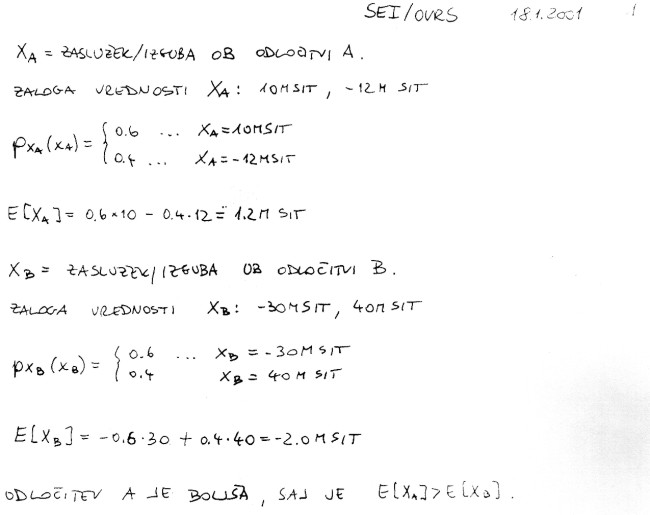 SEI/OVRS 18.1.2001 1
X_A = ZASLUŽEK/IZGUBA OB ODLOČITVI A.
ZALOGA VREDNOSTI X_A: 10M SIT, -12M SIT
p_{X_A}(x_A) = { 0.6 ... X_A=10M SIT
0.4 ... X_A=-12M SIT
E[X_A] = 0.6*10 - 0.4·12 = 1.2M SIT
X_B = ZASLUŽEK/IZGUBA OB ODLOČITVI B.
ZALOGA VREDNOSTI X_B: -30M SIT, 40M SIT
p_{X_B}(x_B) = { 0.6 ... X_B = -30M SIT
0.4 X_B = 40M SIT
E[X_B] = -0.6·30 + 0.4·40 = -2.0M SIT
ODLOČITEV A JE BOLJŠA, SAJ JE E[X_A] > E[X_B].